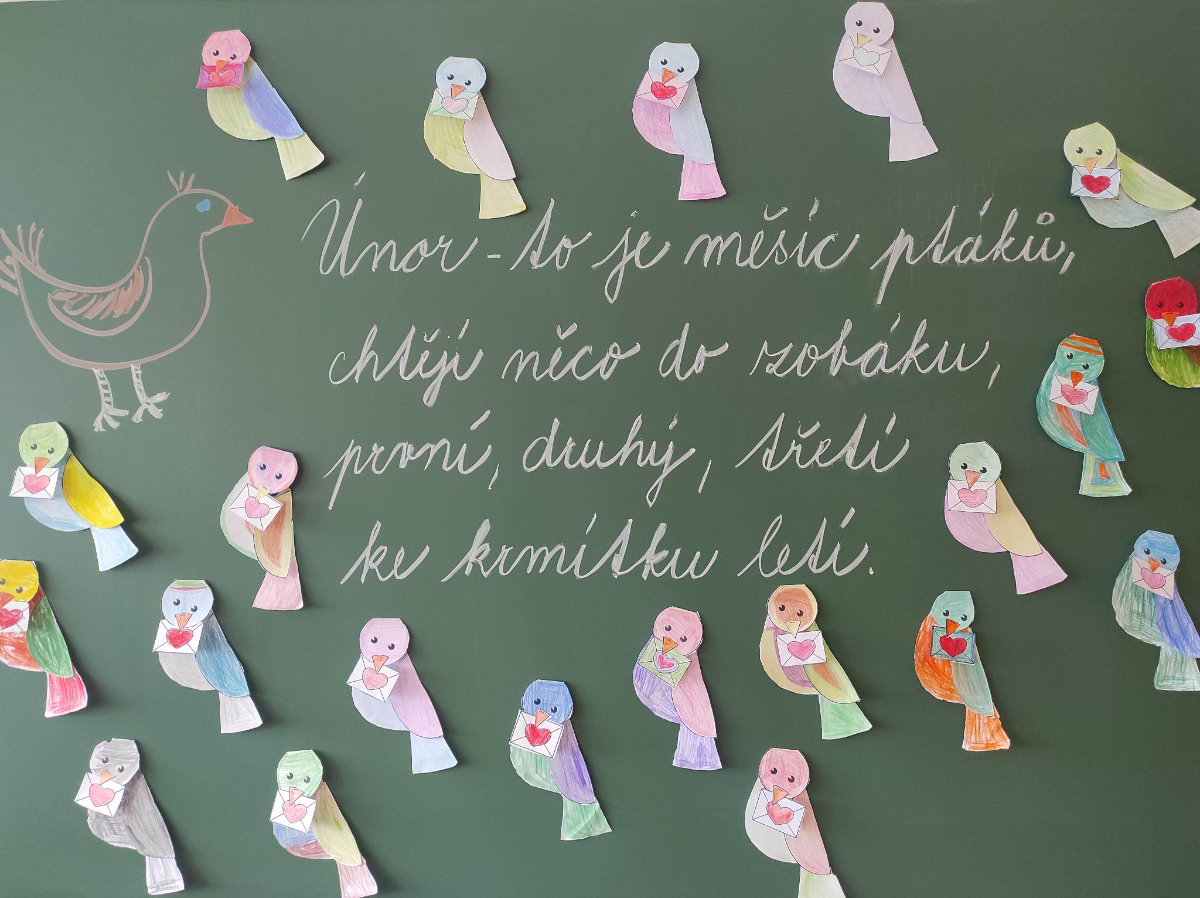 Únor - to je měsíc ptáků,
chtějí něco do zobáku,
první, druhý, třetí
ke krmítku letí.